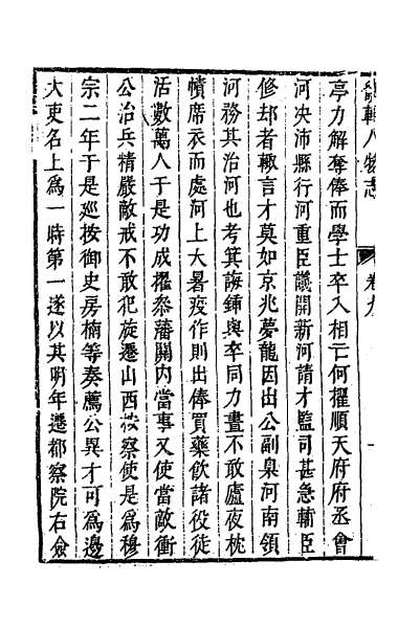 畿輔人物志 卷九
亭力解奪俸而學士卒入相亡何擢順天府府丞會
河央沛縣行河重臣議開新河請才監司甚急輔臣
修却者輙言才莫如京兆夢龍因出公副臬河南領
河務其治河也考箕誨鍤與卒同力晝不敢廬夜枕
幘席衣而處河上大暑疫作則出俸買藥飲諸役徒
活數萬人于是功成擢叅藩關內當事又使當敵衝
公治兵精嚴敵戒不敢犯旋遷山西按察使是爲穆
宗二年于是廵按御史房楠等奏薦公異才可爲邊
大吏名上爲一時第一遂以其明年遷都察院右僉